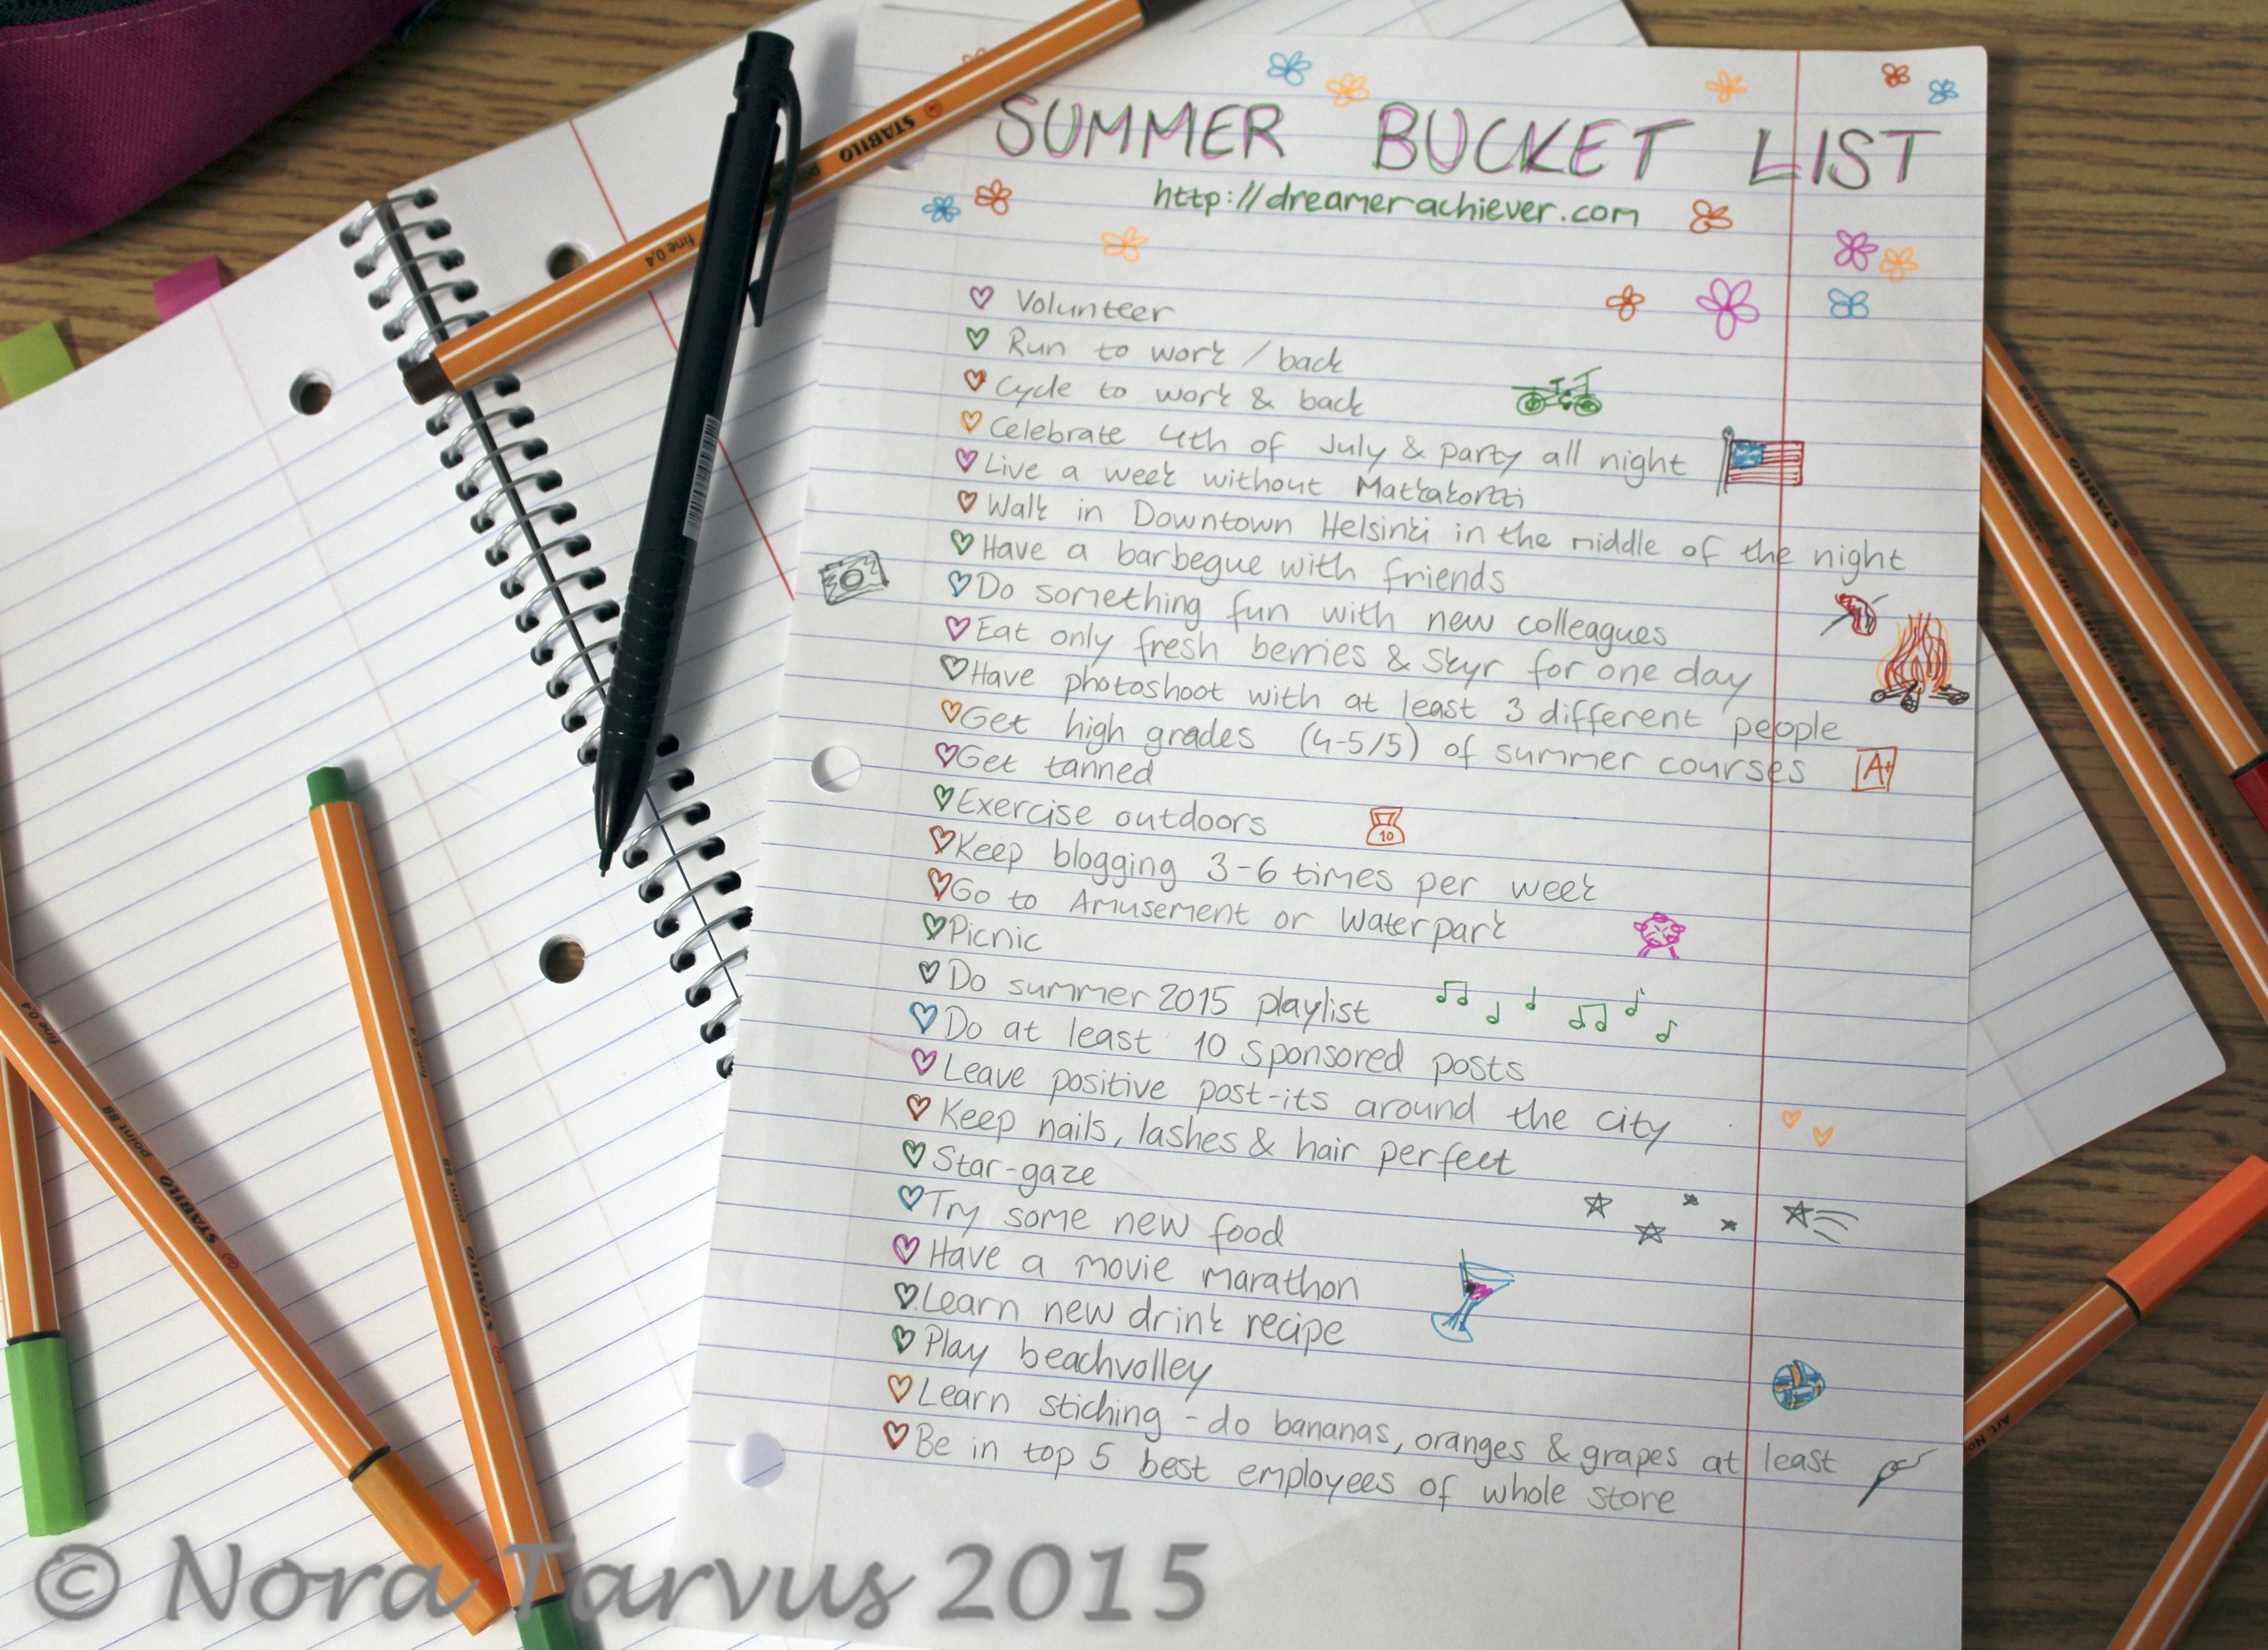 SUMMER BUCKET LIST
http://dreamerachiever.com
Volunteer
Run to work / back
Cycle to work & back
Celebrate 4th of July & party all night
Live a week without Matkakortti
Walk in Downtown Helsinki in the middle of the night
Have a barbegue with friends
Do something fun with new colleagues
Eat only fresh berries & Skyr for one day
Have photoshoot with at least 3 different people
Get high grades (4-5/5) of summer courses
A+
Get tanned
Exercise outdoors
10
Keep blogging 3-6 times per week
Go to Amusement or Waterpark
Picnic
Do summer 2015 playlist
Do at least 10 sponsored posts
Leave positive post-its around the city
Keep nails, lashes & hair perfect
Star-gaze
Try some new food
Have a movie marathon
Learn new drink recipe
Play beachvolley
Learn stiching - do bananas, oranges & grapes at least
Be in top 5 best employees of whole store
STABILO point
fine 0,4
STABILO point 88 fine 0,4
STABILO point 88 fine 0,4
STABILO point 88
© Nora Tarvus 2015